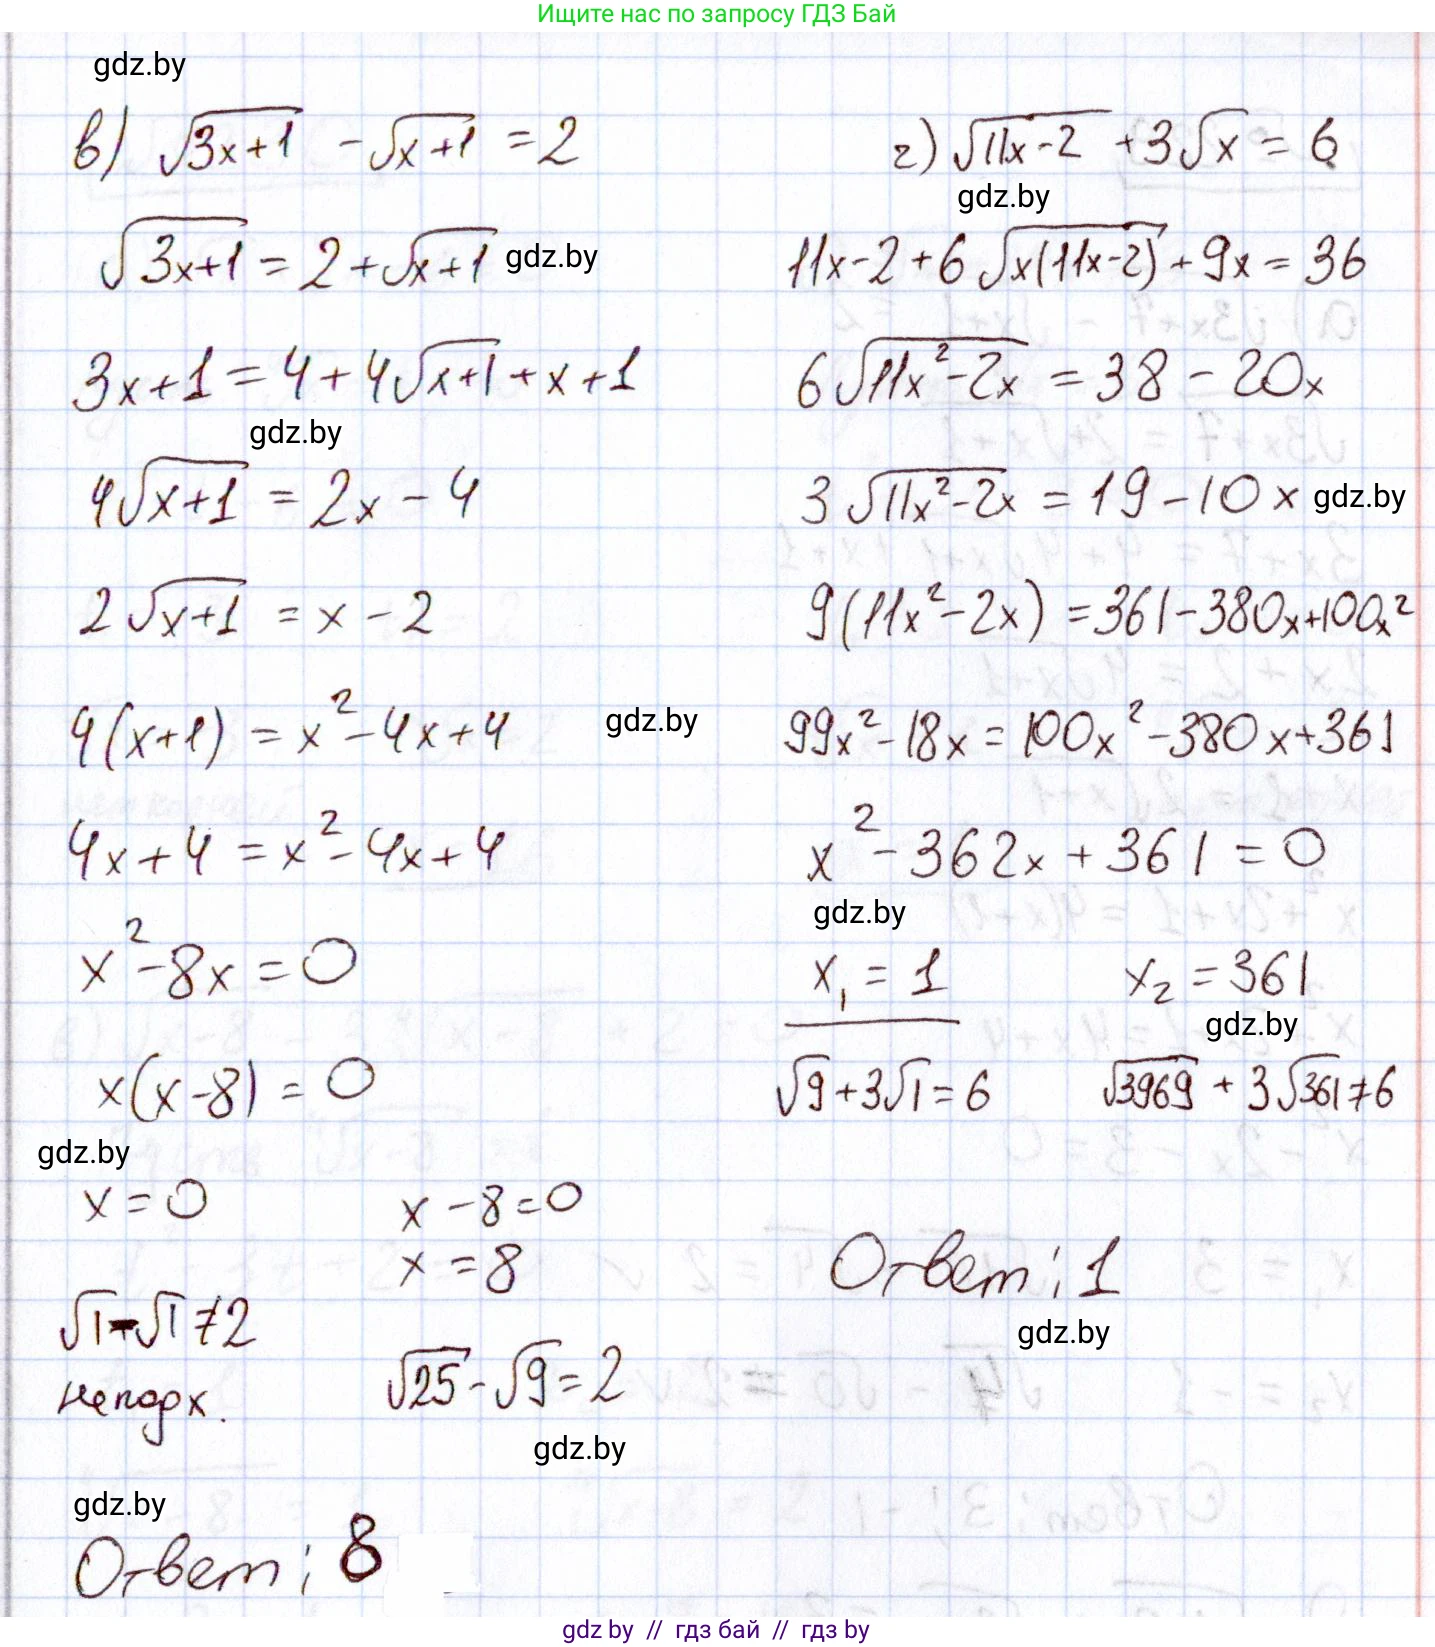 Ищите нас по запросу ГДЗ Бай
gdz.by
в) √(3x+1) - √(x+1) = 2
√(3x+1) = 2 + √(x+1) gdz.by
3x+1 = 4 + 4√(x+1) + x + 1
gdz.by
4√(x+1) = 2x - 4
2√(x+1) = x - 2
4(x+1) = x² - 4x + 4 gdz.by
4x + 4 = x² - 4x + 4
x² - 8x = 0
x(x-8) = 0
gdz.by
x = 0
x - 8 = 0
x = 8
√1 - √1 ≠ 2
не подх.
√25 - √9 = 2
gdz.by
gdz.by
Ответ: 8
г) √(11x-2) + 3√x = 6
gdz.by
11x - 2 + 6√(x(11x-2)) + 9x = 36
6√(11x²-2x) = 38 - 20x
3√(11x²-2x) = 19 - 10x gdz.by
9(11x² - 2x) = 361 - 380x + 100x²
99x² - 18x = 100x² - 380x + 361
x² - 362x + 361 = 0
gdz.by
x₁ = 1
x₂ = 361
gdz.by
√9 + 3√1 = 6
√3969 + 3√361 ≠ 6
Ответ: 1
gdz.by
gdz by // гдз бай // гдз by